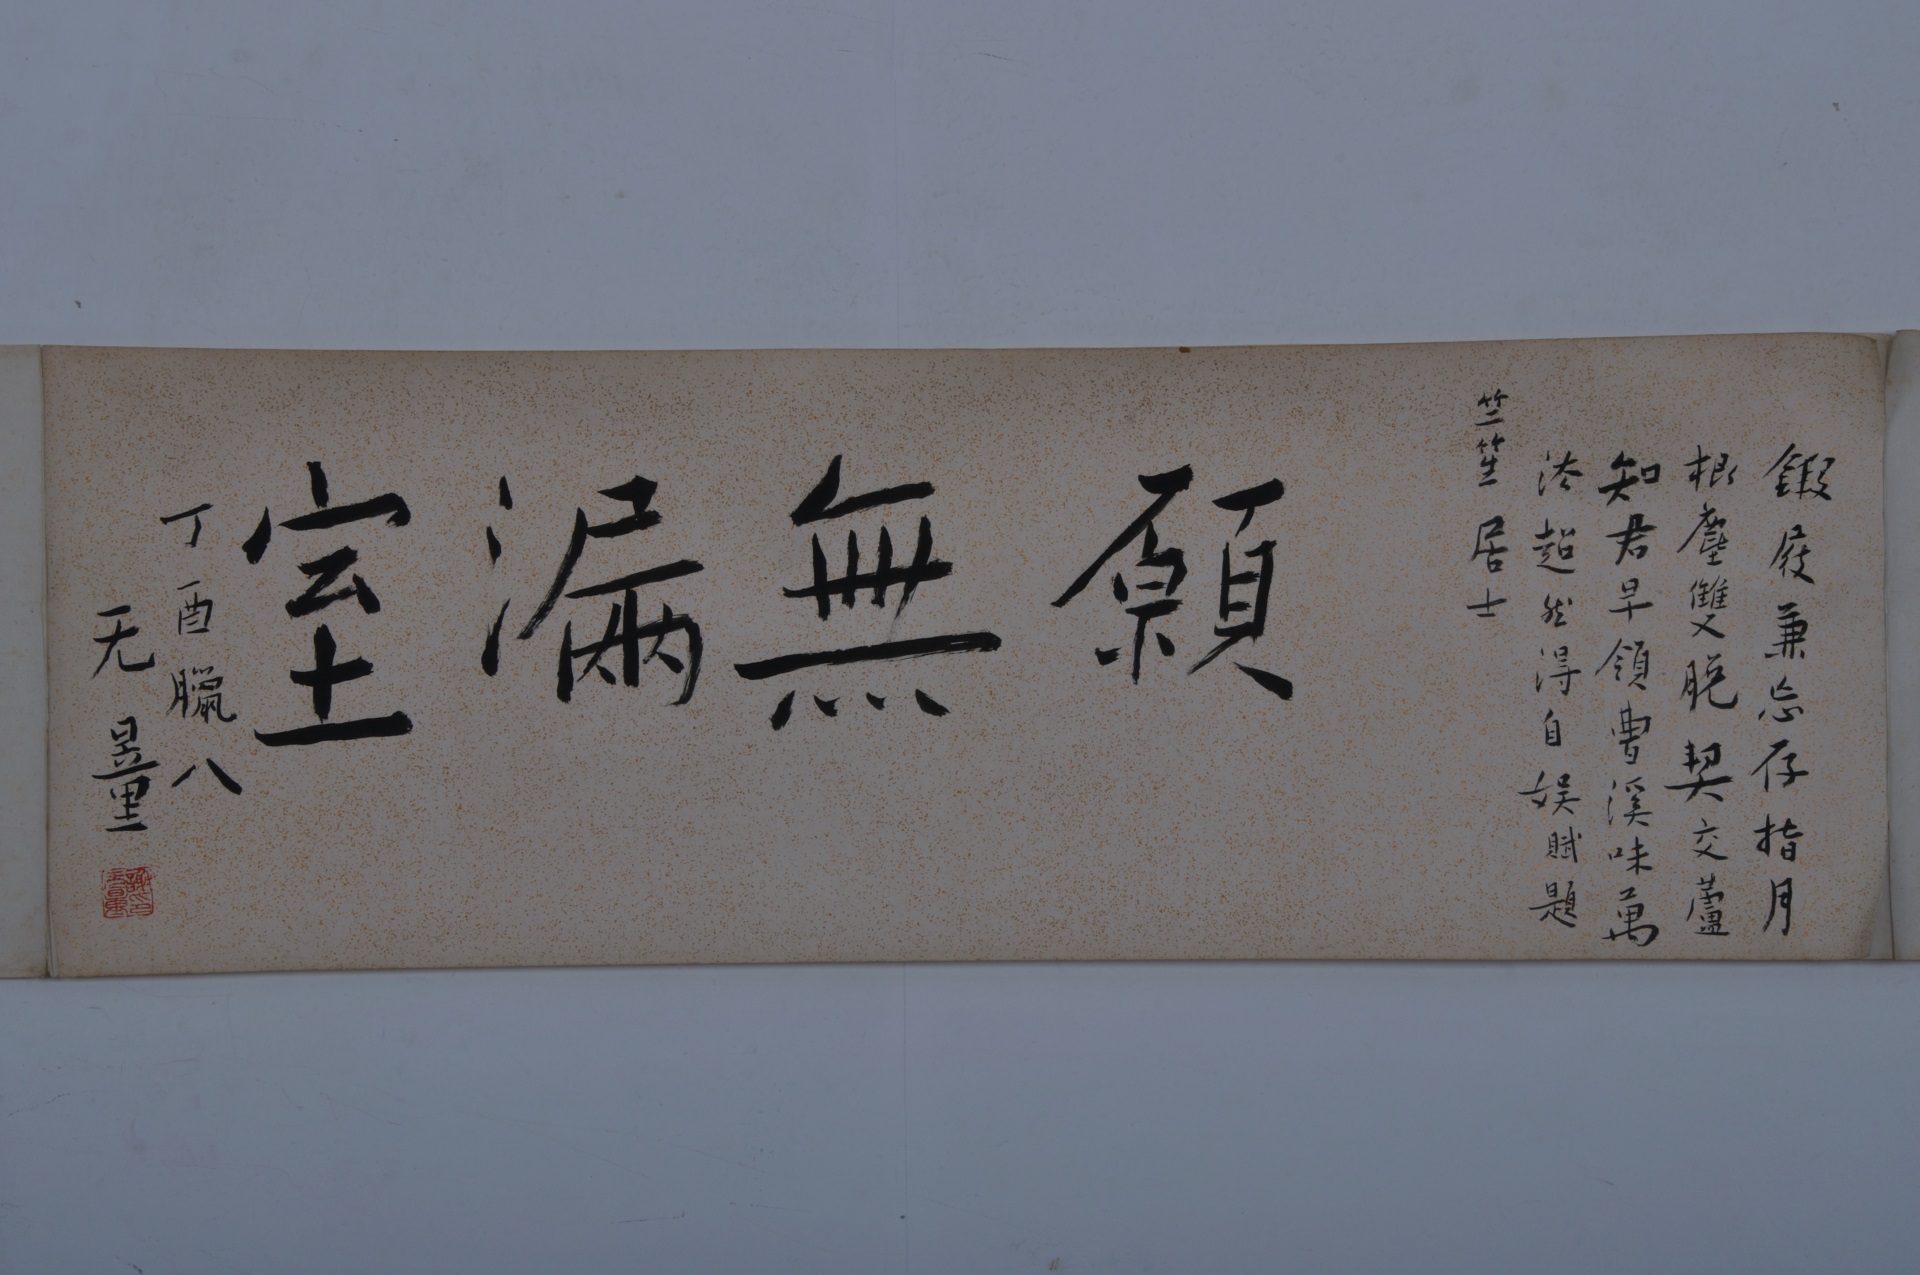 鍛屐兼忘存指月
根塵雙脫契交蘆
知君早領曹溪味萬
沴超然得自娛賦題
竺笙居士
願無漏室
丁酉臘八
无量